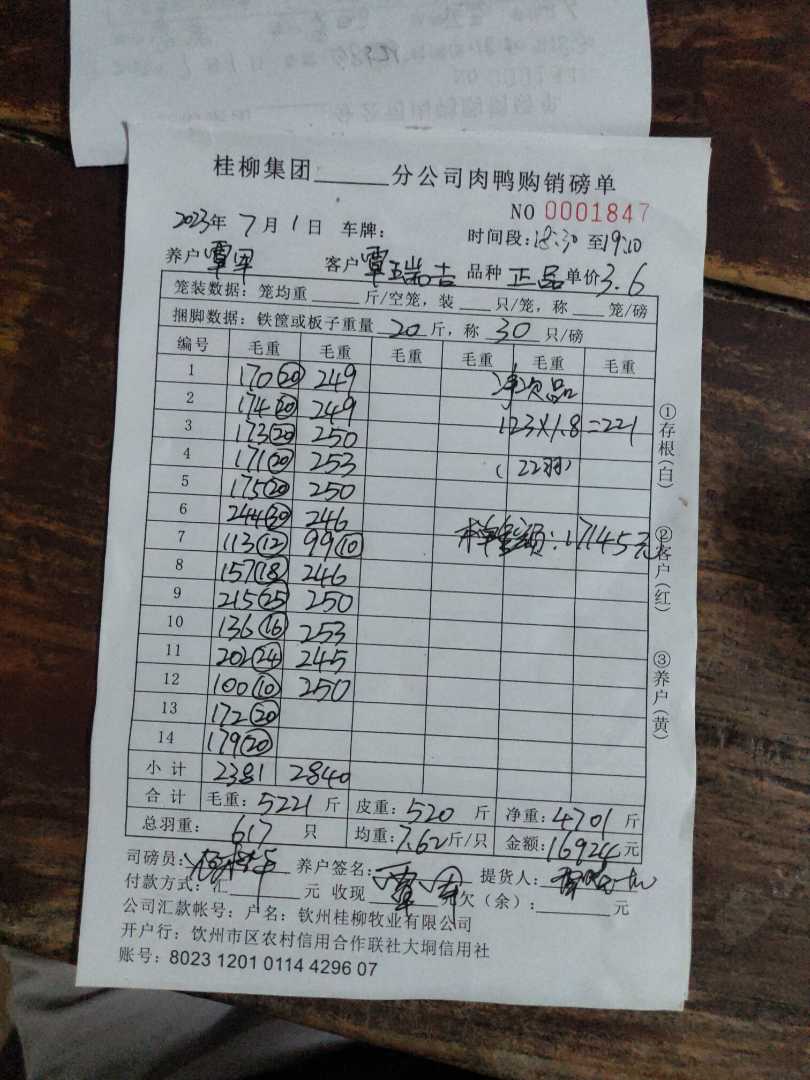 桂柳集团______分公司肉鸭购销磅单
NO 0001847
2023年 7月 1日 车牌： 时间段：18:30 至19:10
养户 覃军 客户 覃瑞吉 品种 正品 单价3.6
笼装数据：笼均重____斤/空笼，装___只/笼，称___笼/磅
捆脚数据：铁筐或板子重量 20 斤，称 30 只/磅
编号 毛重 毛重 毛重 毛重 毛重 毛重
1 170(20) 249 净次品
2 174(20) 249
3 173(20) 250 123×1.8=221
4 171(20) 253 (22羽)
5 175(20) 250
6 244(30) 246
7 113(12) 99(10) 本单总额：17145元
8 157(18) 246
9 215(25) 250
10 136(16) 253
11 202(24) 245
12 100(10) 250
13 172(20)
14 179(20)
小计 2381 2840
合计 毛重：5221 斤 皮重：520 斤 净重：4701 斤
总羽重：617 只 均重：7.62斤/只 金额：16924元
司磅员： 养户签名：覃军 提货人：
付款方式：汇______元 收现 欠（余）：______元
公司汇款帐号：户名：钦州桂柳牧业有限公司
开户行：钦州市区农村信用合作联社大垌信用社
账号：8023 1201 0114 4296 07
①存根（白）
②客户（红）
③养户（黄）